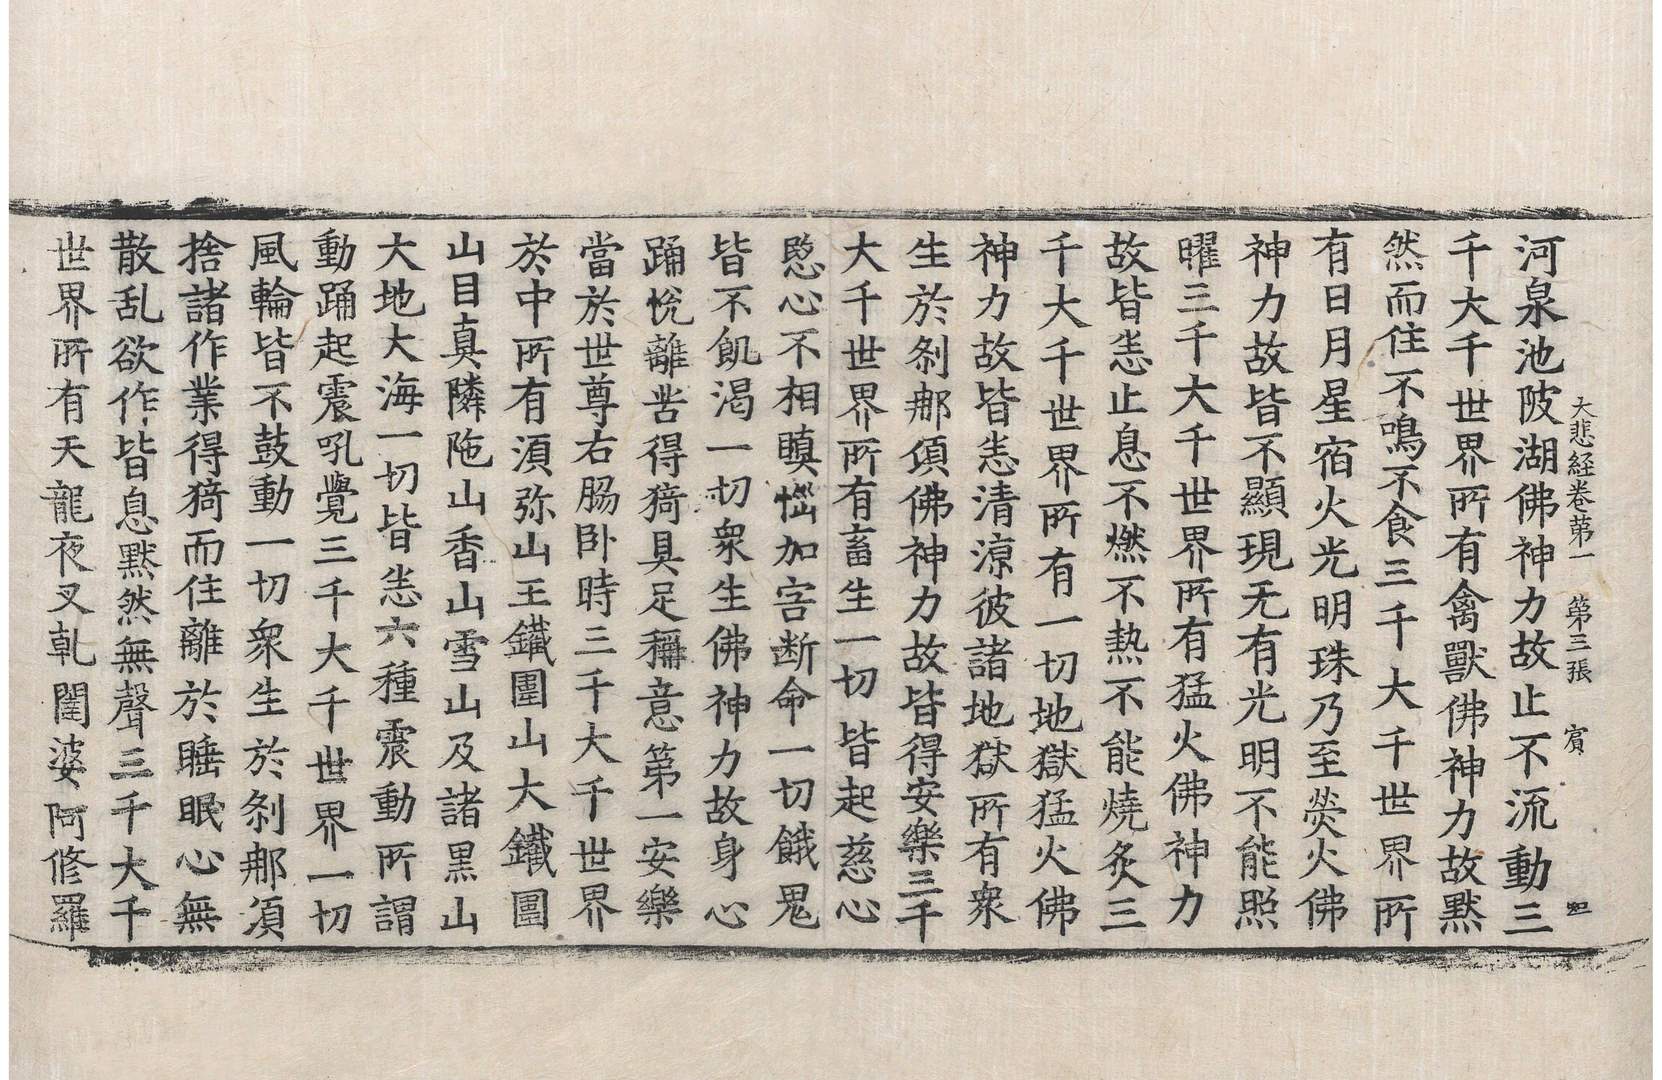 大悲経卷苐一　苐三張　賔
河泉池陂湖佛神力故止不流動三
千大千世界所有禽獸佛神力故黙
然而住不鳴不食三千大千世界所
有日月星宿火光明珠乃至熒火佛
神力故皆不顯現无有光明不能照
曜三千大千世界所有猛火佛神力
故皆恙止息不燃不熱不能燒炙三
千大千世界所有一切地獄猛火佛
神力故皆恙清涼彼諸地獄所有衆
生於刹那須佛神力故皆得安樂三千
大千世界所有畜生一切皆起慈心
愍心不相瞋惱加害断命一切餓鬼
皆不飢渇一切衆生佛神力故身心
踊悅離苦得猗具足稱意苐一安樂
當於世尊右脇卧時三千大千世界
於中所有湏弥山王鐵圍山大鐵圍
山目真隣陁山香山雪山及諸黒山
大地大海一切皆恙六種震動所謂
動踊起震吼覺三千大千世界一切
風輪皆不鼓動一切衆生於刹那湏
捨諸作業得猗而住離於睡眠心無
散乱欲作皆息黙然無聲三千大千
世界所有天龍夜叉乹闥婆阿修羅